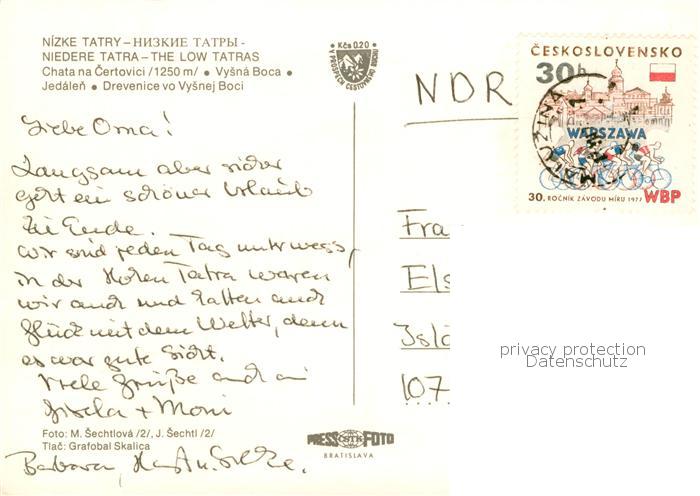 NÍZKE TATRY – НИЗКИЕ ТАТРЫ -
NIEDERE TATRA – THE LOW TATRAS
Chata na Čertovici /1250 m/ • Vyšná Boca •
Jedáleň • Drevenice vo Vyšnej Boci
Kčs 0.20
Liebe Oma!
Langsam aber sicher
geht ein schöner Urlaub
zu Ende.
Wir sind jeden Tag unterwegs,
in der Hohen Tatra waren
wir auch und hatten auch
Glück mit dem Wetter, denn
es war gute Sicht.
Viele Grüße auch an
Gisela + Moni
Foto: M. Šechtlová /2/, J. Šechtl /2/
Tlač: Grafobal Skalica
Barbara,
PRESS ČSTK FOTO
BRATISLAVA
NDR
ČESKOSLOVENSKO
30h
WARSZAWA
30. ROČNÍK ZÁVODU MÍRU 1977 WBP
MALUŽINÁ
Fra
Els
Isl
107
privacy protection
Datenschutz